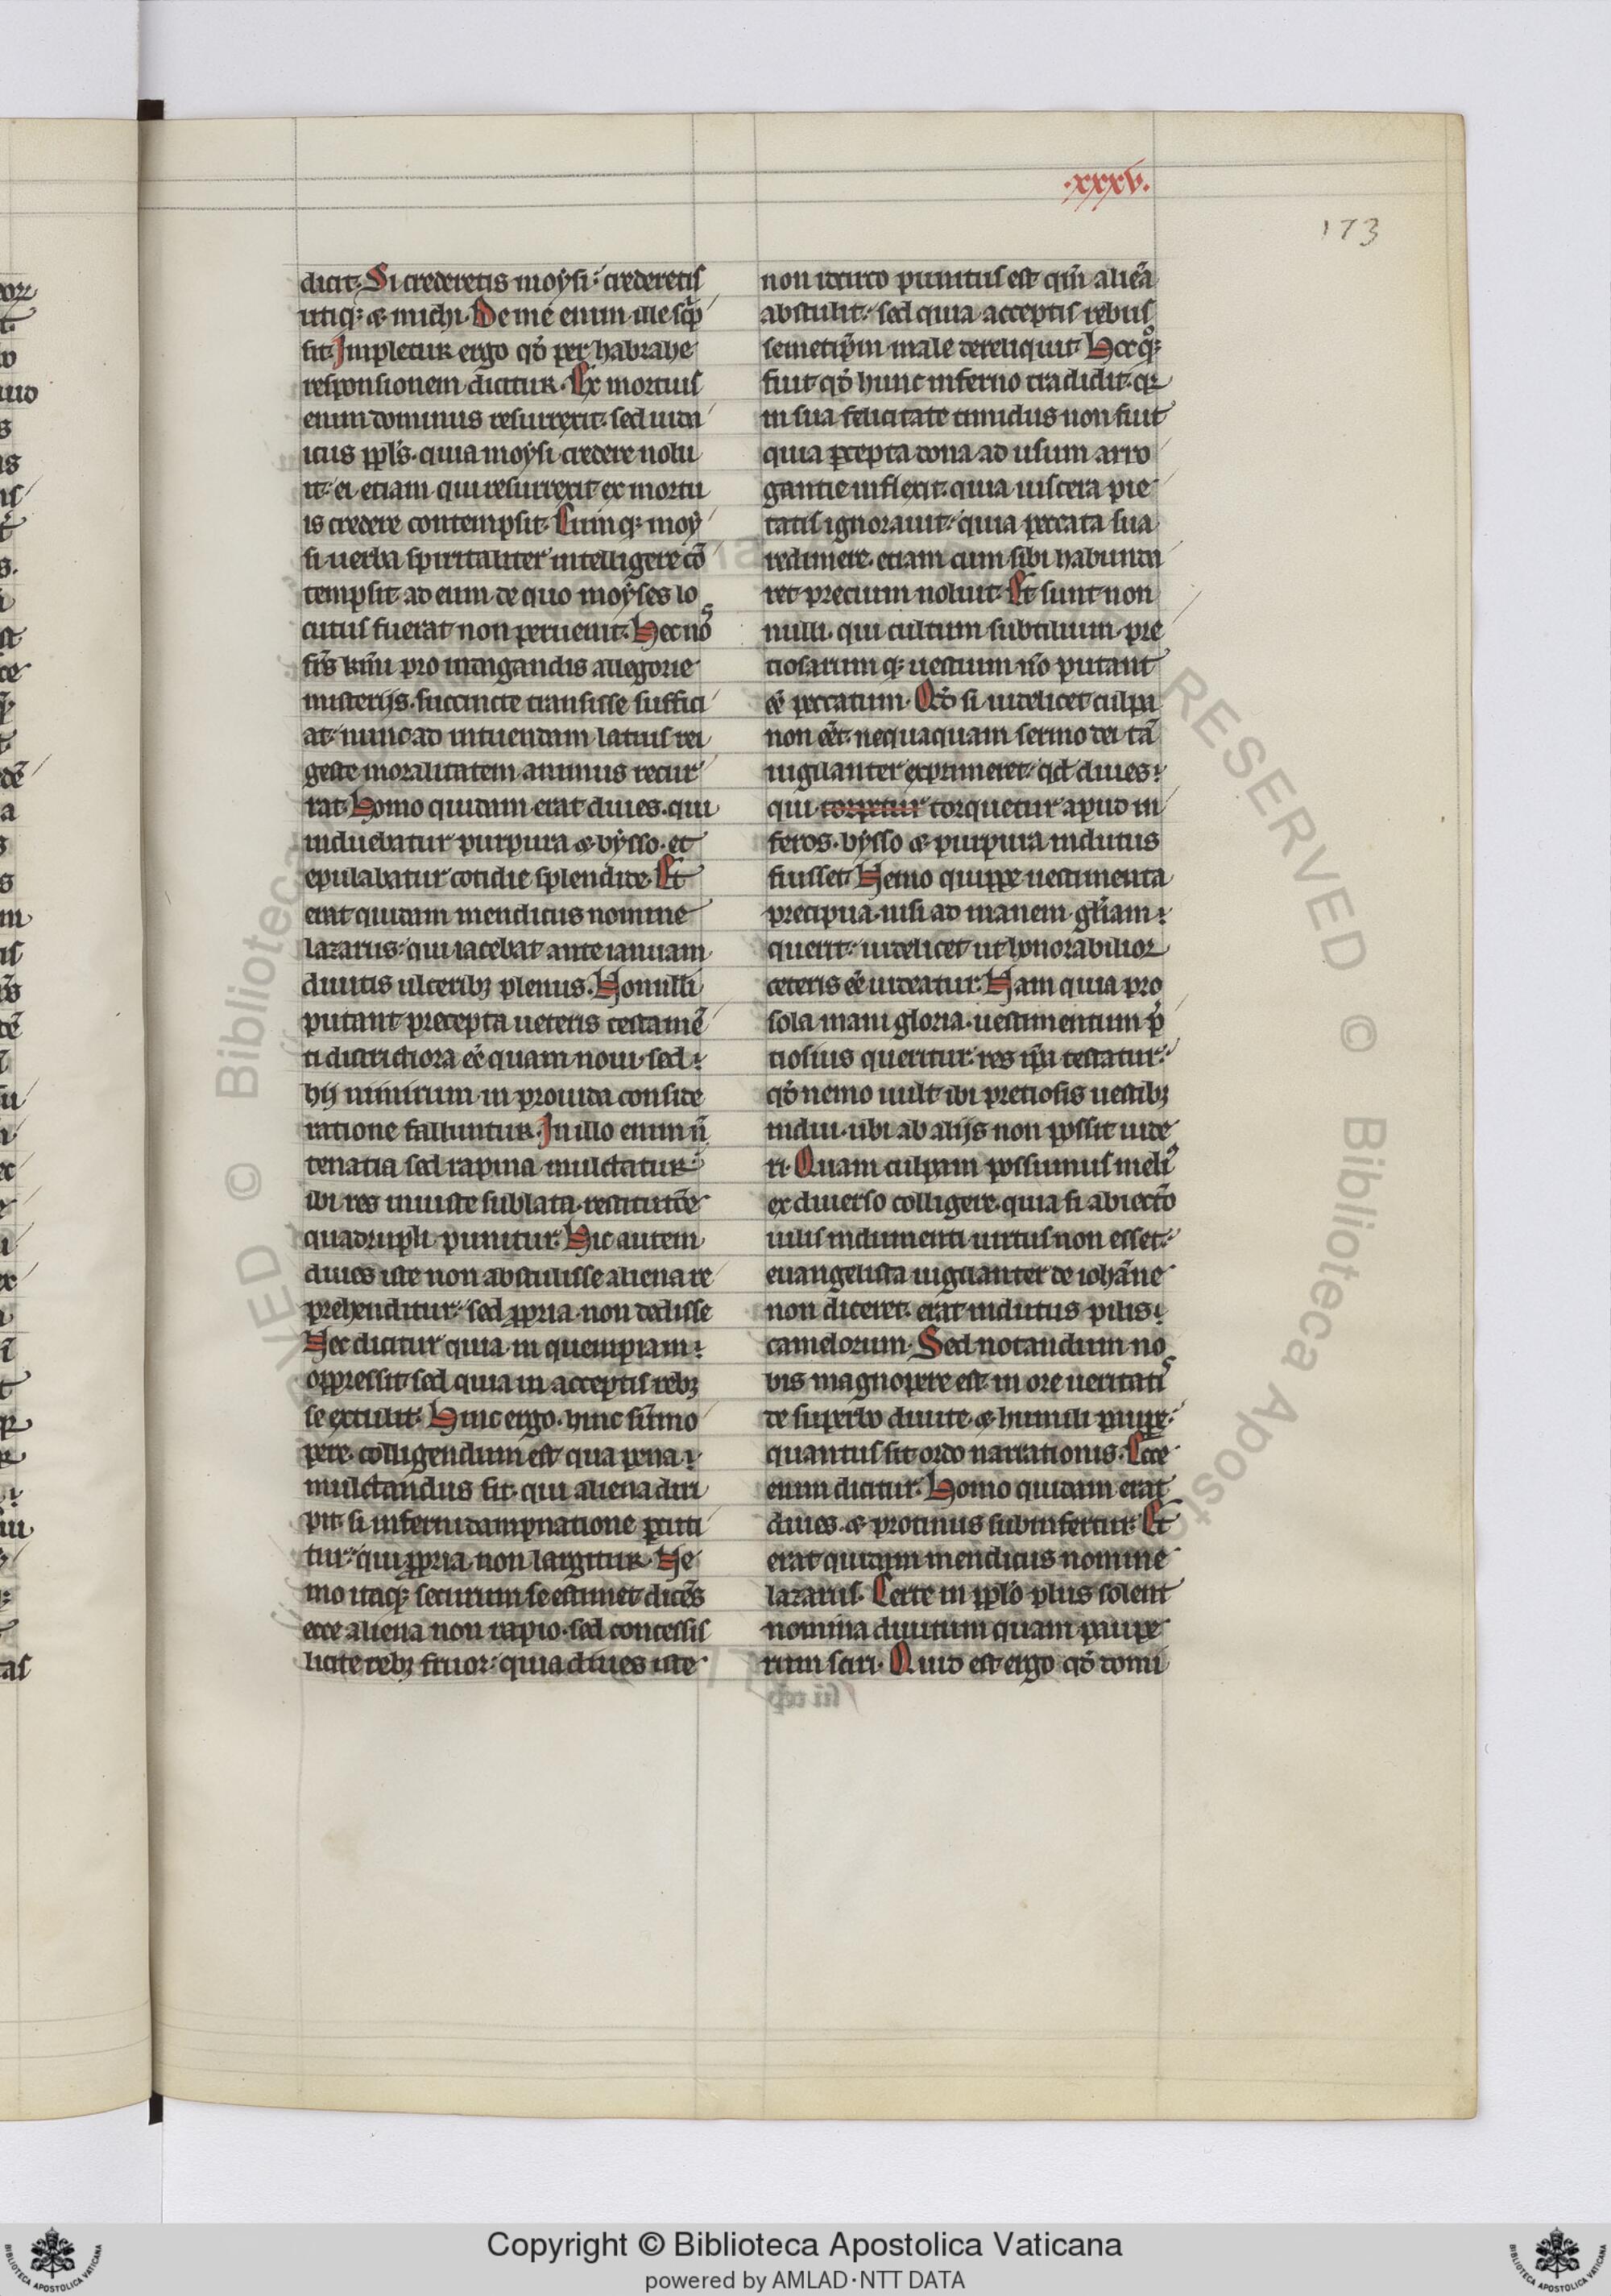 .xxxv.
173
dicit. Si crederetis moysi: crederetis
utiq; & michi. De me enim ille sc̃p
sit. Impletur ergo qđ per habrahe
responsionem dicitur. Ex mortuis
enim dominus resurrexit. sed iuda
icus ppl̃s. quia moysi credere nolu
it. ei etiam qui resurrexit ex mortu
is credere contempsit. Cumq; moy
si uerba spiritaliter intelligere cõ
tempsit. ad eum de quo moyses lo
cutus fuerat non peruenit. Hec nos
fr̃s km̃i pro indagandis allegorie
misterijs. succincte transisse suffici
at. nunc ad intuendam latius rei
geste moralitatem animus recur
rat. Homo quidam erat diues. qui
induebatur purpura & bysso. et
epulabatur cotidie splendide. Et
erat quidam mendicus nomine
lazarus. qui iacebat ante ianuam
diuitis ulcerib; plenus. Nonulli
putant precepta ueteris testamẽ
ti districtiora eẽ quam noui. sed
hij nimirum in prouida conside
ratione falluntur. In illo enim ñ
tenatia sed rapina mulctatur.
ibi res iniuste sublata. restitutõe
quadrupli punitur. Hic autem
diues iste non abstulisse aliena re
prehenditur. sed ꝓpria non dedisse
Nec dicitur quia in quempiam
oppressit. sed quia in acceptis reb;
se extulit. Hinc ergo. hinc sũmo
pere. colligendum est qua pena
mulctandus sit. qui aliena diri
pit. si inferni dampnatione ꝑcuti
tur. qui ꝓpria non largitur. Ne
mo itaq; securum se estimet dicẽs
ecce aliena non rapio. sed concessis
licite reb; fruor. quia diues iste
non idcirco punitus est qm̃ aliẽa
abstulit. sed quia acceptis rebus
semetip̃m male dereliquit. Hoc qoq;
fuit qđ hunc inferno tradidit. qr
in sua felicitate timidus non fuit
quia ꝑcepta dona ad usum arro
gantie inflexit. quia uiscera pie
tatis ignorauit. quia peccata sua
redimere. etiam cum sibi habunda
ret precium noluit. Et sunt non
nulli. qui cultum subtilium. pre
tiosarumq; uestium nõ putant
eẽ peccatum. Qđ si uidelicet culpa
non eẽt. nequaquam sermo dei tã
uigilanter exprimeret. qđ diues
qui torpetur torquetur apud in
feros. bysso & purpura indutus
fuisset. Nemo quippe uestimenta
precipua. nisi ad inanem gl̃iam
querit. uidelicet ut honorabilior
ceteris eẽ uideatur. Nam quia pro
sola inani gloria. uestimentum p̃
tiosius queritur. res ip̃a testatur.
qđ nemo uult ibi pretiosis uestib;
indui. ubi ab alijs non possit uide
ri. Quam culpam possumus meli9
ex diuerso colligere. quia si abiectõ
uilis indumenti uirtus non esset.
euangelista uigilanter de iohãne
non diceret. erat indutus pilis
camelorum. Sed notandum no
bis magnopere est. in ore ueritatis
de superbo diuite. & humili paupe.
quantus sit ordo narrationis. Ecce
enim dicitur. Homo quidam erat
diues. & protinus subinfertur. Et
erat quidam mendicus nomine
lazarus. Certe in pplõ plus solent
nomina diuitum quam paupe
rum sciri. Quid est ergo qđ domi
Copyright © Biblioteca Apostolica Vaticana
powered by AMLAD·NTT DATA